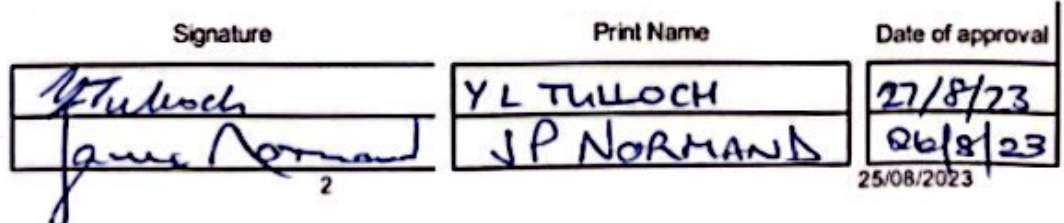 Signature Print Name Date of approval
YTulloch Y L TULLOCH 27/8/23
James Normand JP NORMAND 26/8/23
2 25/08/2023